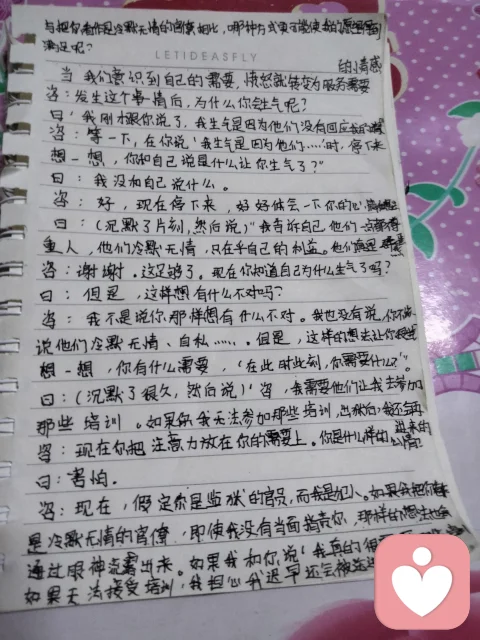 与把你看作是冷默无情的官僚相比，哪种方式更可能使我的愿望得到
满足呢？
LETIDEASFLY
的情感
当我们意识到自己的需要，愤怒就转变为服务需要
咨：发生这个事情后，为什么你会生气呢？
曰：我刚才跟你说了，我生气是因为他们没有回应我的
咨：等一下，在你说‘我生气是因为他们……’时，停下来
想一想，你和自己说是什么让你生气了？”
曰：我没和自己说什么。
咨：好，现在停下来，好好体会一下你的心
曰：（沉默了片刻，然后说）“我告诉自己他们一点都不
重人，他们冷默无情，只在乎自己的利益。他们
咨：谢谢。这足够了。现在你知道自己为什么生气了吗？
曰：但是，这样想有什么不对吗？
咨：我不是说你那样想有什么不对。我也没有说，你不
说他们冷默无情、自私……。但是，这样的想法让你
想一想，你有什么需要，‘在此时此刻，你需要什么？’。
曰：（沉默了很久，然后说）‘咨，我需要他们让我去参加
那些培训。如果我无法参加那些培训，出狱后，我还会再
进来的
咨：现在你把注意力放在你的需要上。你是什么样的心情？
曰：害怕．
咨：现在，假定你是监狱的官员，而我是犯人。如果我把你
是冷默无情的官僚，即使我没有当面指责你，那样的想法也会
通过眼神流露出来。如果我和你说‘我真的很
如果无法接受培训，我担心我迟早还会被